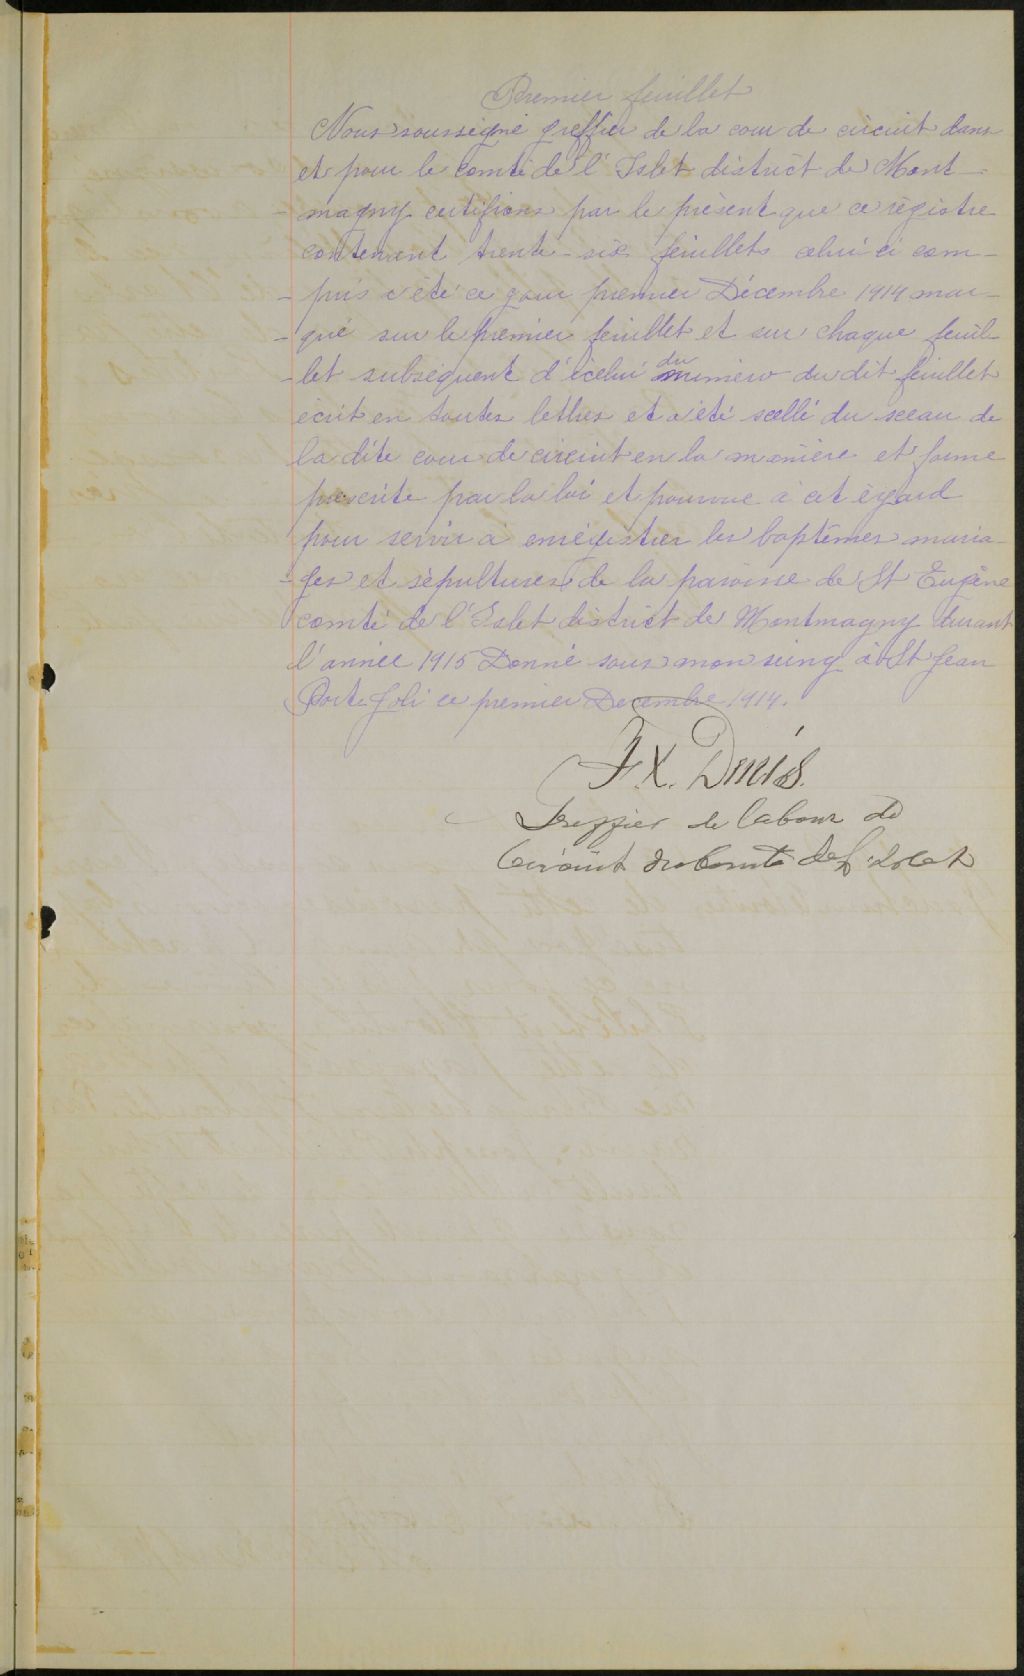 Premier feuillet
Nous soussigné greffier de la cour de circuit dans
et pour le comté de l'Islet district de Mont-
-magny certifions par le présent que ce régistre
contenant trente-six feuillets celui ci com-
-pris a été ce jour premier Décembre 1914 mar-
-qué sur le premier feuillet et sur chaque feuil-
-let subséquent d'icelui du numéro du dit feuillet
écrit en toutes lettres et a été scellé du sceau de
la dite cour de circuit en la manière et forme
prescrite par la loi et pourvue à cet égard
pour servir à enrégistrer les baptêmes maria-
-ges et sépultures de la paroisse de St Eugène
comté de l'Islet district de Montmagny durant
l'année 1915 Donné sous mon seing à St Jean
Port Joli ce premier Decembre 1914.
F. X. Denis.
Greffier de la Cour de
Circuit du Comté de L'Islet